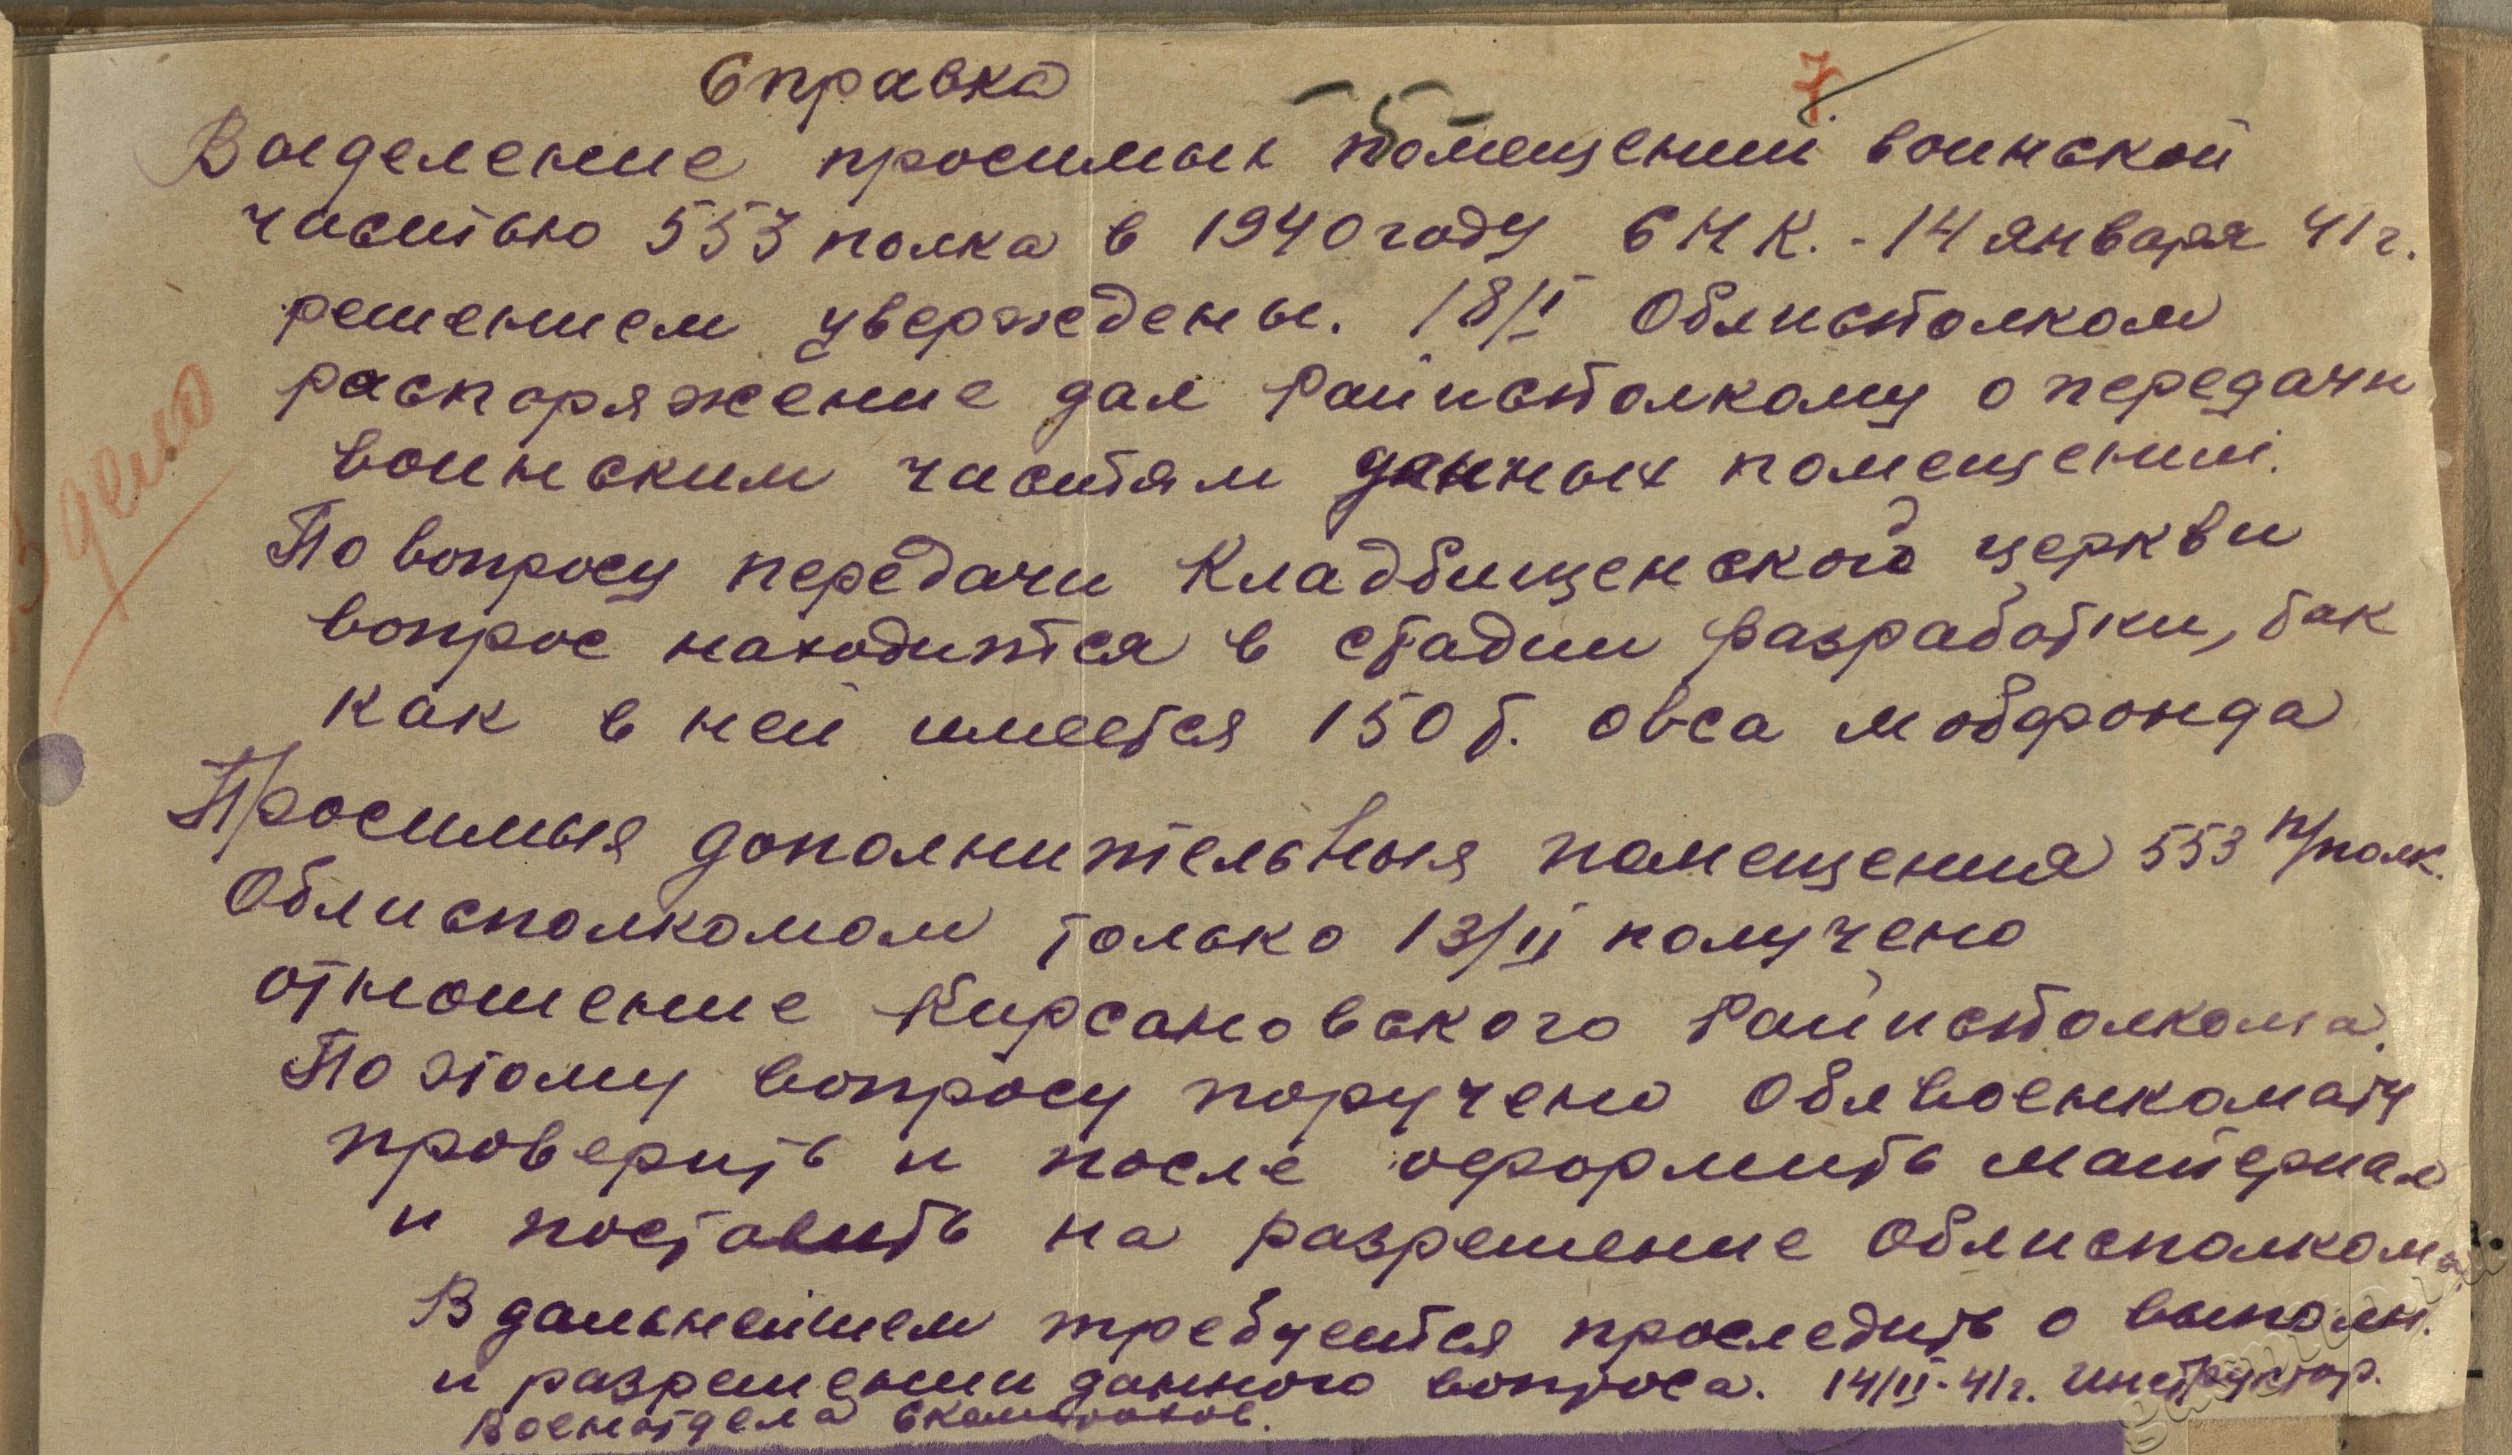 Справка
7.
Выделение просимых помещений воинской
частью 553 полка в 1940 году СНК. - 14 января 41 г.
решением уверждены. 18/I Облисполком
распоряжение дал Райисполкому о передачи
воинским частям данных помещений.
В дело
По вопросу передачи Кладбищенской церкви
вопрос находится в стадии разработки, так
как в ней имеется 150 т. овса мобфонда
Просимыя дополнительныя помещения 553 п/полк.
Облисполкомом только 13/II получено
отношение Кирсановского Райисполкома.
По этому вопросу поручено Облвоенкомату
проверить и после оформить материал
и поставить на разрешение Облисполкома
В дальнейшем требуется проследить о выполн.
и разрешении данного вопроса. 14/II-41 г. Инструктор.
Военотдела